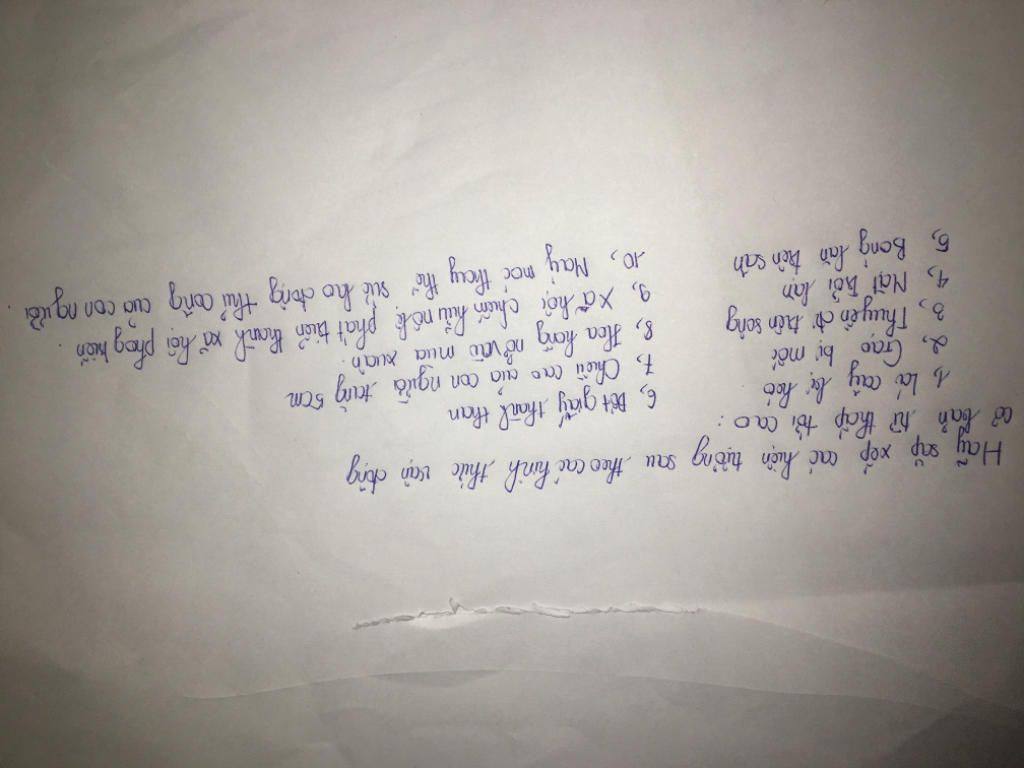 Hãy sắp xếp các hiện tượng sau theo các hình thức vận động
cơ bản từ thấp tới cao :
1, Lá cây bị héo
2, Gạo bị mốc
3, Thuyền đi trên sông
4, Mặt trời lặn
5, Bóng lăn trên sân
6, Đốt giấy thành than
7, Chiều cao của con người tăng 5cm
8, Hoa hồng nở vào mùa xuân.
9, Xã hội chiếm hữu nô lệ phát triển thành xã hội phong kiến.
10, Máy móc thay thế sức lao động thủ công của con người.